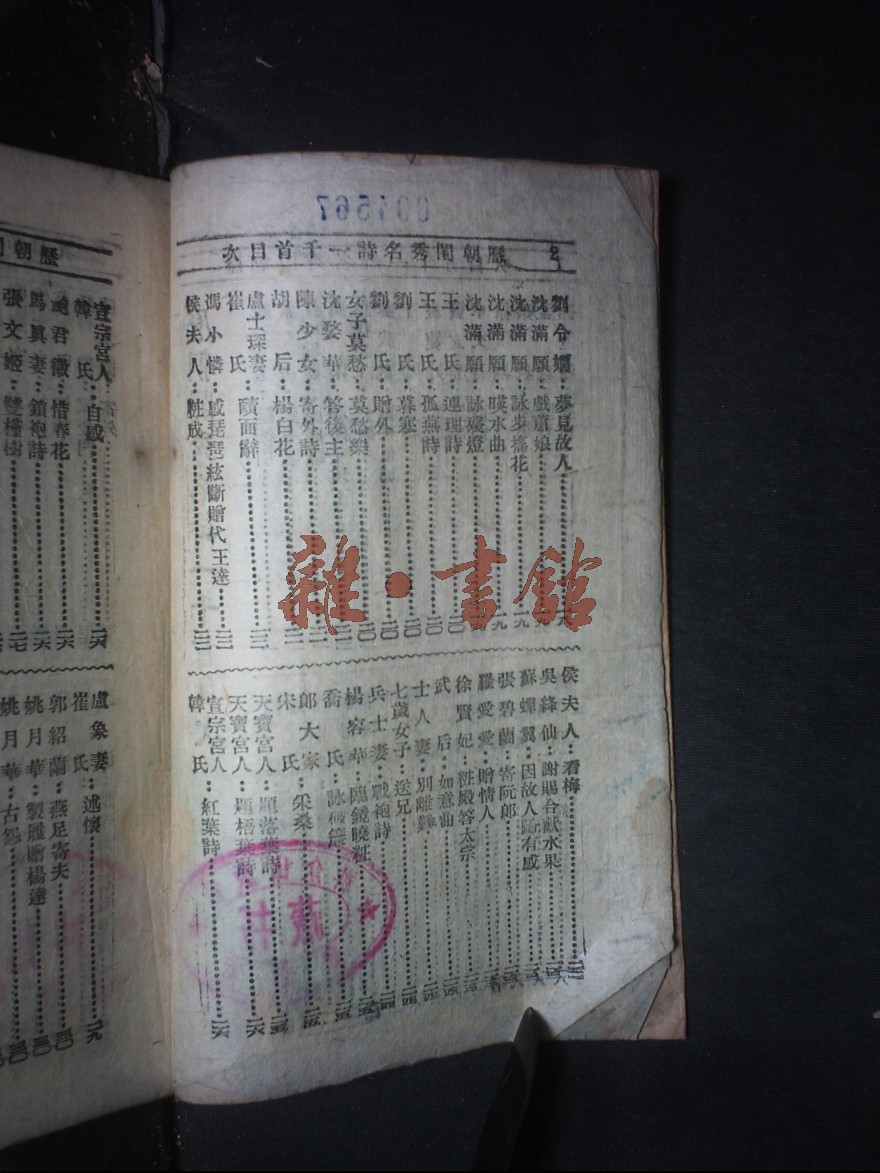 歷朝閨秀名詩一千首目次
2
劉令嫺：夢見故人
沈滿願：戲蕭娘
沈滿願：詠步搖花
沈滿願：暎水曲
沈滿願：詠殘燈
王氏：連理詩
王氏：孤燕詩
劉氏：暮寒
劉氏：贈外
女子莫愁：莫愁樂
沈婺華：答後主
陳少女：寄外詩
胡后：楊白花
盧士琛妻
崔氏：靧面辭
馮小憐：感琵琶絃斷贈代王達
侯夫人：粧成
侯夫人：看梅
吳絳仙：謝賜合歡水果
蘇蟬翼：因故人歸有感
張碧蘭：寄阮郎
羅愛愛：贈情人
徐賢妃：粧殿答太宗
武后：如意曲
士人妻：別離難
七歲女子：送兄
兵士妻：戰袍詩
楊容華：臨鏡曉粧
喬氏：詠
郎大家
宋氏：采桑
天寶宮人：題落葉詩
天寶宮人：題梧葉詩
宣宗宮人
韓氏：紅葉詩
歷朝
宣宗宮人
韓氏：自感
鮑君徽：惜春花
馬真妻：鎖袍詩
張文姬：雙槿樹
盧象妻
崔氏：述懷
郭紹蘭：燕足寄夫
姚月華：製履贈楊達
姚月華：古怨
雜·書館
004567